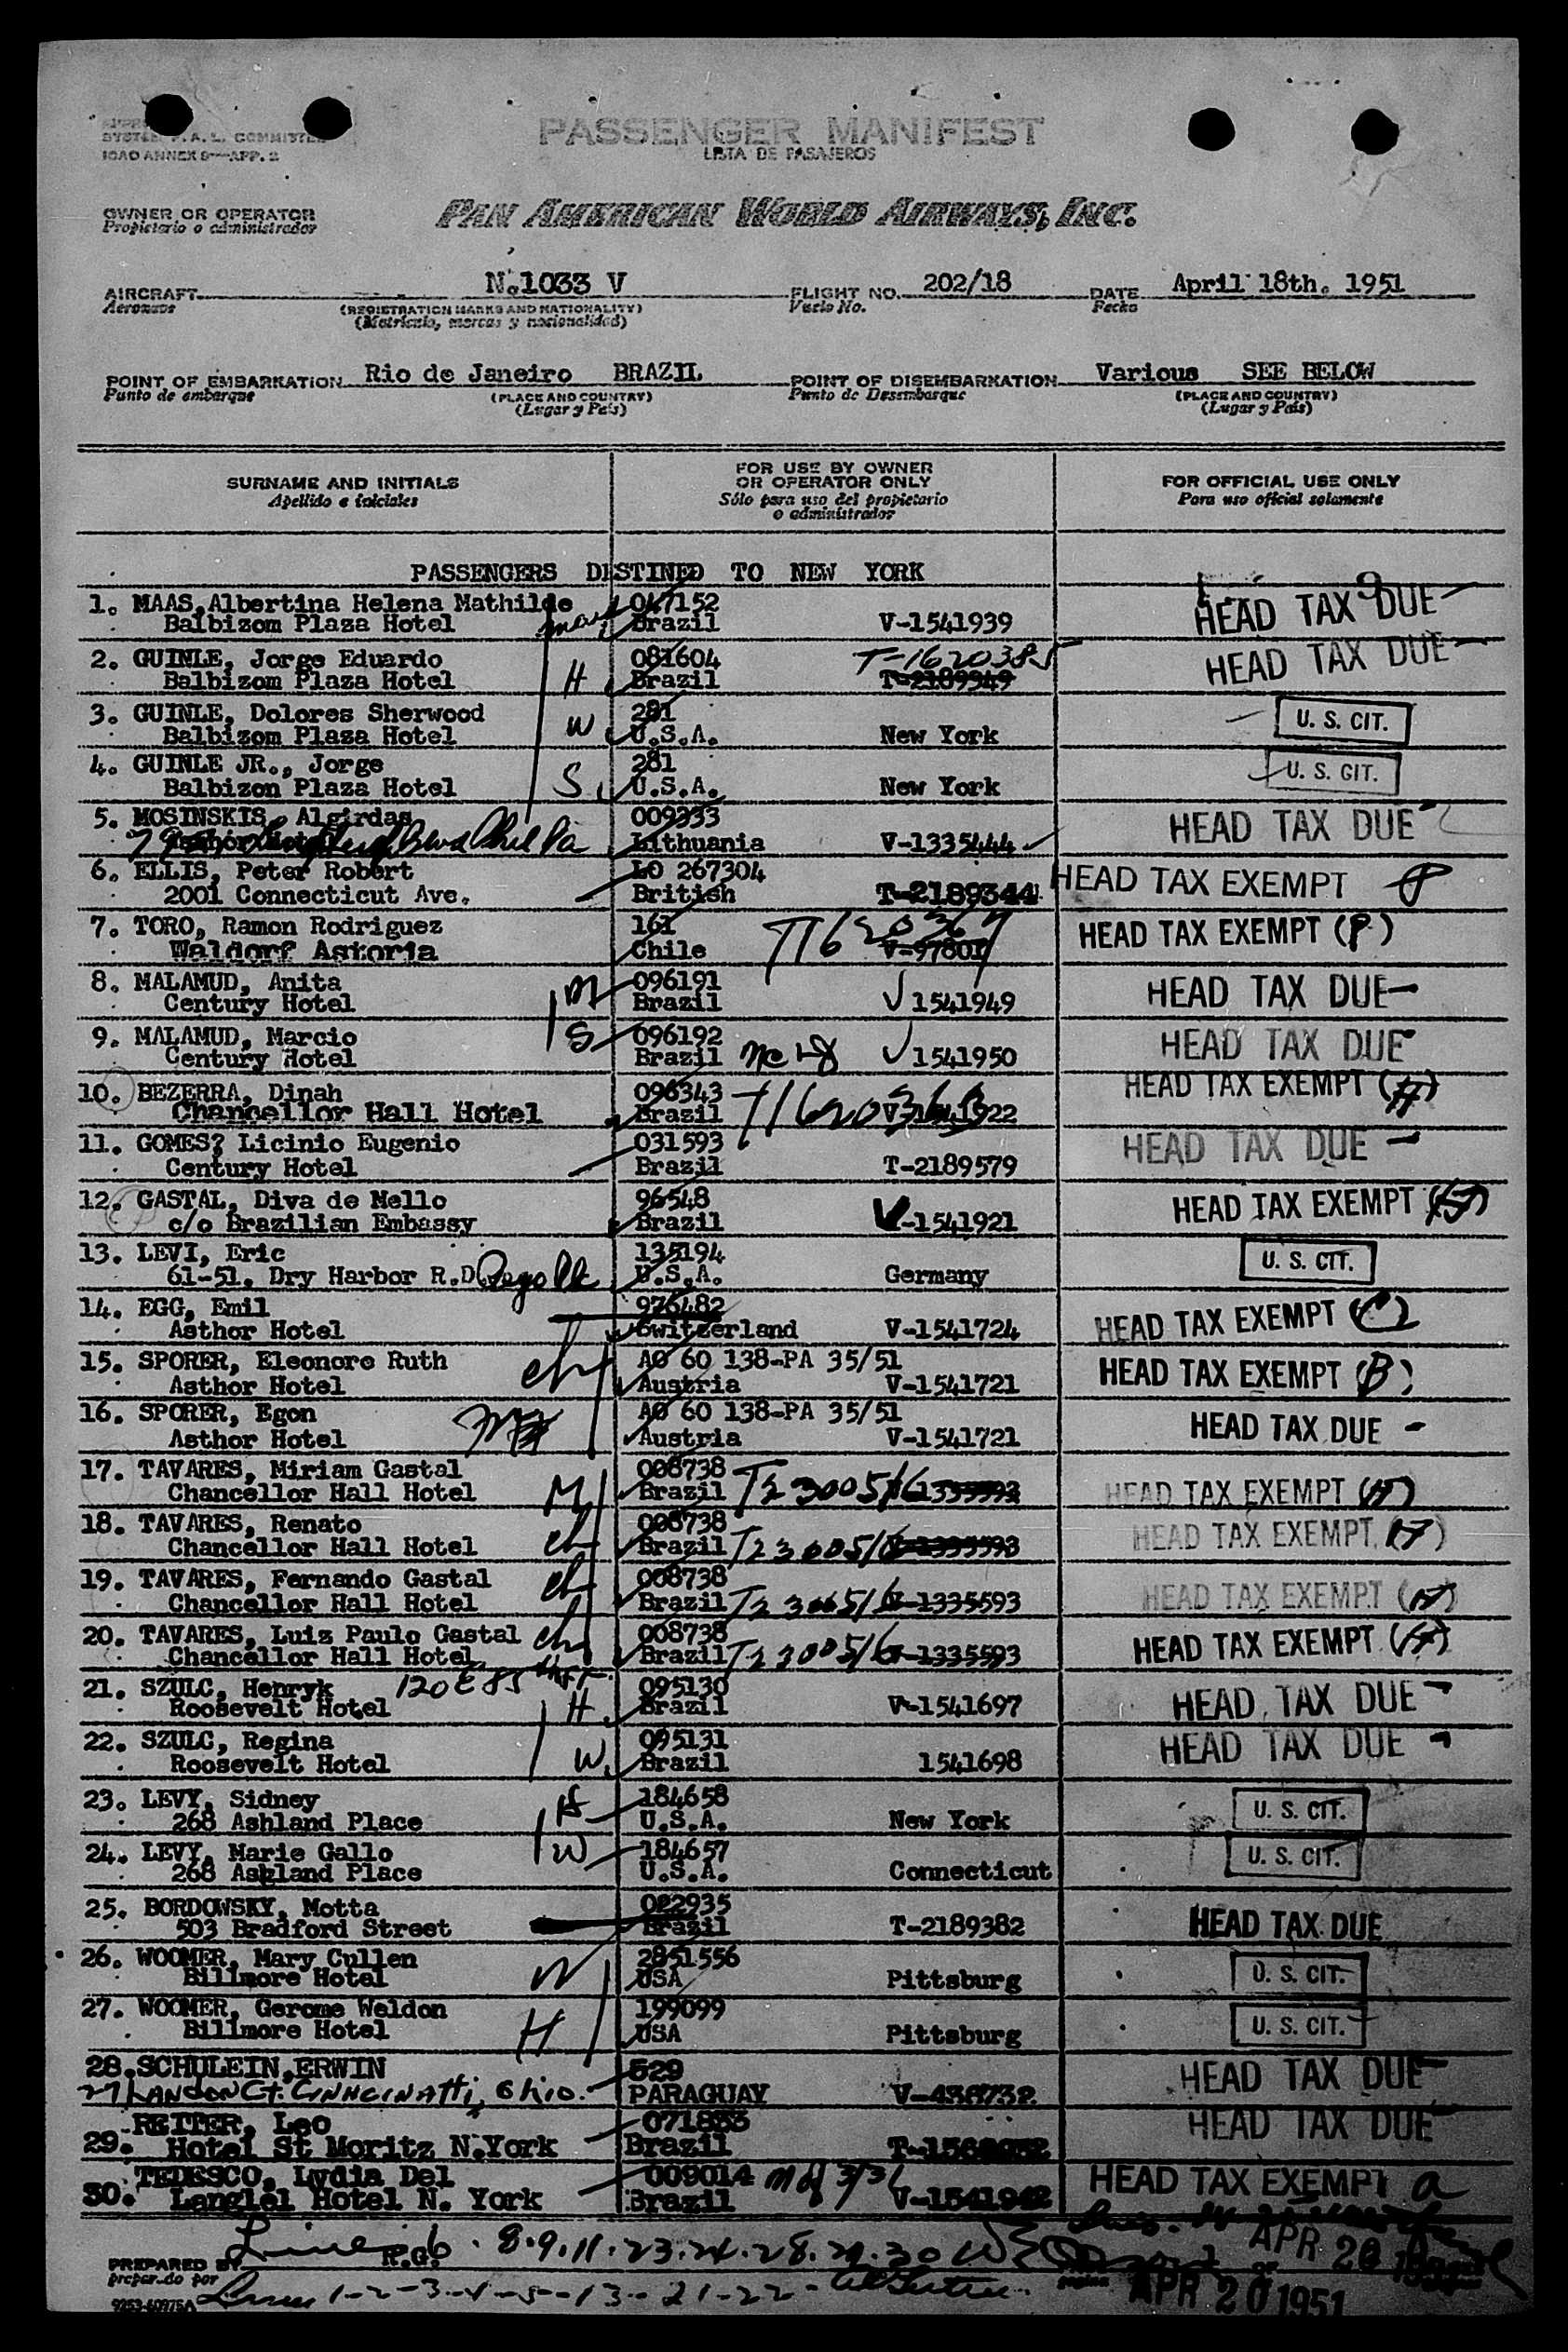 SYSTEM P. A. L. COMMISTEE
ICAO ANNEX 9—APP. 2
PASSENGER MANIFEST
LISTA DE PASAJEROS
OWNER OR OPERATOR
Propietario o administrador
PAN AMERICAN WORLD AIRWAYS, INC.
AIRCRAFT N.1033 V FLIGHT NO. 202/18 DATE April 18th. 1951
Aeronave (REGISTRATION MARKS AND NATIONALITY) Vuelo No. Fecha
(Matrícula, marcas y nacionalidad)
POINT OF EMBARKATION Rio de Janeiro BRAZIL POINT OF DISEMBARKATION Various SEE BELOW
Punto de embarque (PLACE AND COUNTRY) Punto de Desembarque (PLACE AND COUNTRY)
(Lugar y País) (Lugar y País)
SURNAME AND INITIALS FOR USE BY OWNER OR OPERATOR ONLY FOR OFFICIAL USE ONLY
Apellido e iniciales Sólo para uso del propietario o administrador Para uso oficial solamente
PASSENGERS DESTINED TO NEW YORK
1. MAAS, Albertina Helena Mathilde 047152 HEAD TAX DUE
Balbizom Plaza Hotel Brazil V-1541939
2. GUINLE, Jorge Eduardo 081604 T-1620385 HEAD TAX DUE
Balbizom Plaza Hotel H Brazil T-2189949
3. GUINLE, Dolores Sherwood 281 U. S. CIT.
Balbizom Plaza Hotel W U.S.A. New York
4. GUINLE JR., Jorge 281 U. S. CIT.
Balbizon Plaza Hotel S U.S.A. New York
5. MOSINSKIS, Algirdas 009333 HEAD TAX DUE
Lithuania V-1335444
6. ELLIS, Peter Robert LO 267304 HEAD TAX EXEMPT
2001 Connecticut Ave. British T-2189344
7. TORO, Ramon Rodriguez 161 HEAD TAX EXEMPT (P)
Waldorf Astoria Chile V-97801
8. MALAMUD, Anita M 096191 HEAD TAX DUE
Century Hotel Brazil V 1541949
9. MALAMUD, Marcio S 096192 HEAD TAX DUE
Century Hotel Brazil V 1541950
10. BEZERRA, Dinah 096343 HEAD TAX EXEMPT (H)
Chancellor Hall Hotel Brazil
11. GOMES? Licinio Eugenio 031593 HEAD TAX DUE
Century Hotel Brazil T-2189579
12. GASTAL, Diva de Mello 96548 HEAD TAX EXEMPT
c/o Brazilian Embassy Brazil V-1541921
13. LEVI, Eric 135194 U. S. CIT.
61-51, Dry Harbor R.D. U.S.A. Germany
14. EGG, Emil 976482 HEAD TAX EXEMPT (C)
Asthor Hotel Switzerland V-1541724
15. SPORER, Eleonore Ruth ch AO 60 138-PA 35/51 HEAD TAX EXEMPT (B)
Asthor Hotel Austria V-1541721
16. SPORER, Egon AO 60 138-PA 35/51 HEAD TAX DUE
Asthor Hotel Austria V-1541721
17. TAVARES, Miriam Gastal 008738 HEAD TAX EXEMPT (H)
Chancellor Hall Hotel M Brazil T2300516
18. TAVARES, Renato 008738 HEAD TAX EXEMPT (H)
Chancellor Hall Hotel ch Brazil T2300516
19. TAVARES, Fernando Gastal ch 008738 HEAD TAX EXEMPT (H)
Chancellor Hall Hotel Brazil T2300516 V-1335593
20. TAVARES, Luiz Paulo Gastal ch 008738 HEAD TAX EXEMPT (H)
Chancellor Hall Hotel Brazil T2300516 V-1335593
21. SZULC, Henryk 120 E 85 095130 HEAD TAX DUE
Roosevelt Hotel H. Brazil V-1541697
22. SZULC, Regina 095131 HEAD TAX DUE
Roosevelt Hotel W. Brazil 1541698
23. LEVY, Sidney H 184658 U. S. CIT.
268 Ashland Place U.S.A. New York
24. LEVY, Marie Gallo W 184657 U. S. CIT.
268 Ashland Place U.S.A. Connecticut
25. BORDOWSKY, Motta 022935 HEAD TAX DUE
503 Bradford Street Brazil T-2189382
26. WOOMER, Mary Cullen 2851556 U. S. CIT.
Billmore Hotel W USA Pittsburg
27. WOOMER, Gerome Weldon 199099 U. S. CIT.
Billmore Hotel H USA Pittsburg
28. SCHULEIN, ERWIN 529 HEAD TAX DUE
27 LANDON Ct. CINNCINATTi, Ohio. PARAGUAY V-436732
29. REITER, Leo 071833 HEAD TAX DUE
Hotel St Moritz N.York Brazil
30. TEDESCO, Lydia Del 009014 HEAD TAX EXEMPT a
Langlel Hotel N. York Brazil V-1541942
Line 6. 8. 9. 11. 23. 24. 28. 29. 30
PREPARED BY R.G. APR 20 1951
preparado por Line 1-2-3-4-5-13-21-22- APR 20 1951
9253-60975A